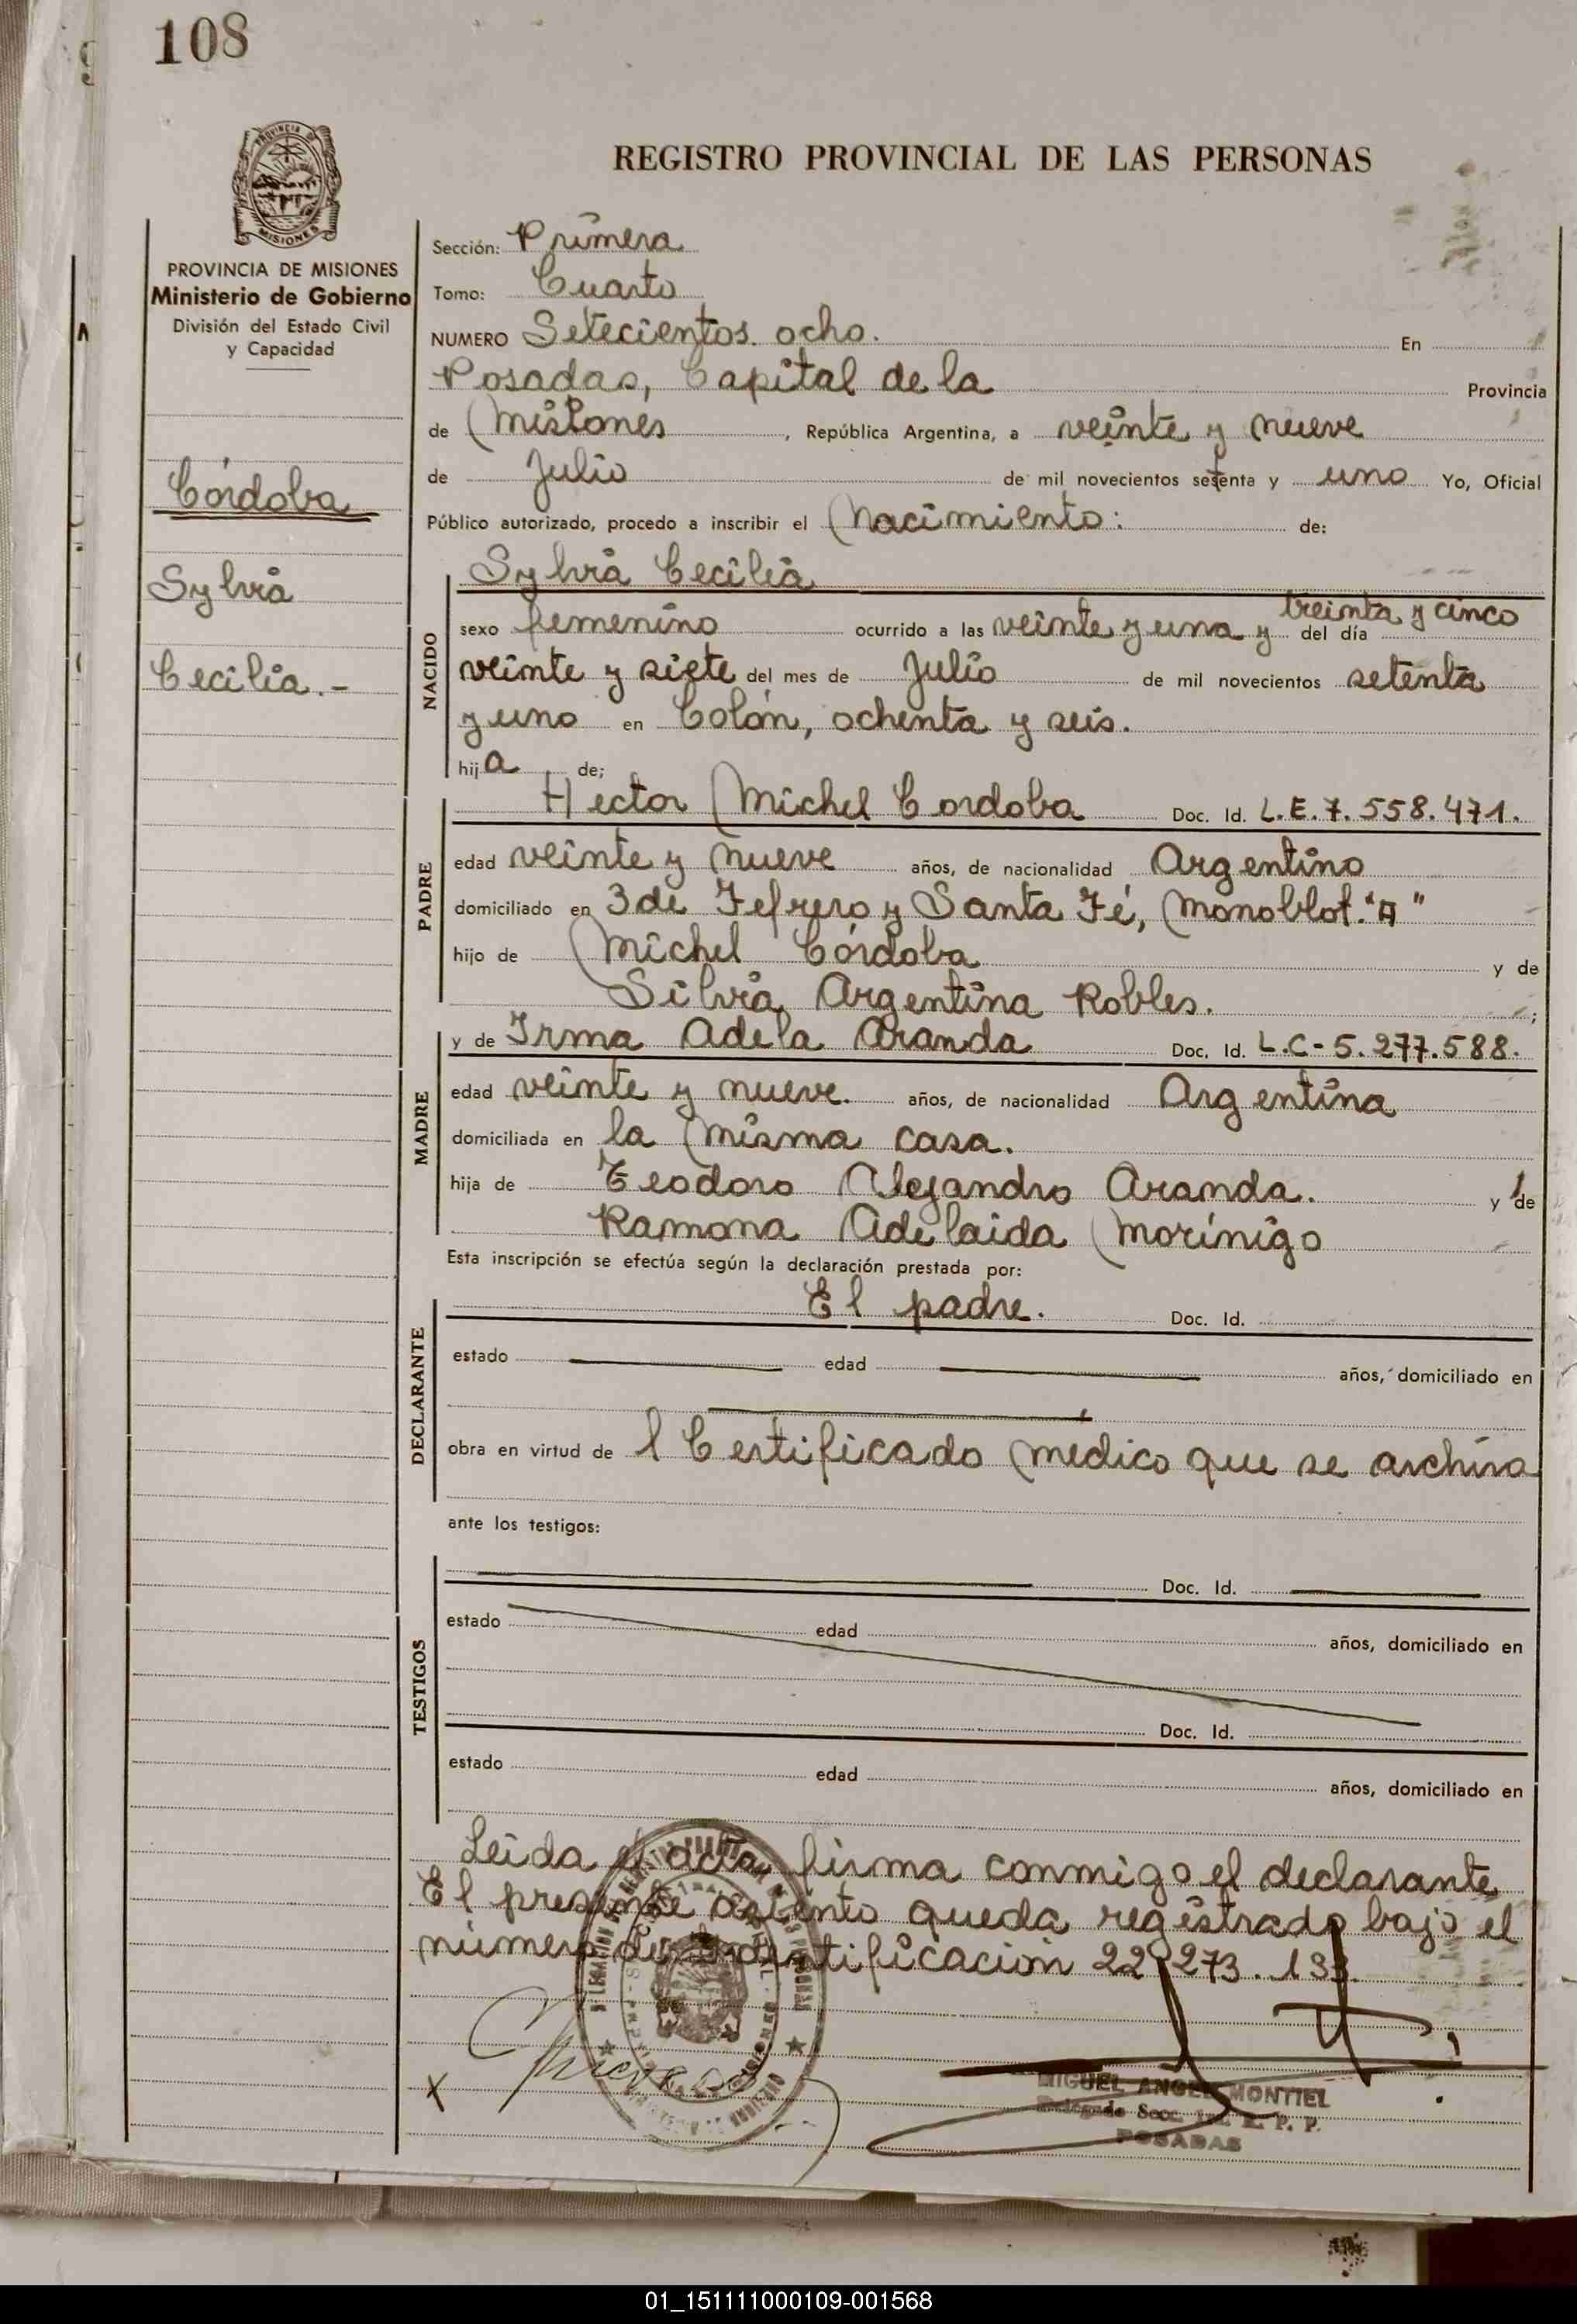 108
PROVINCIA DE MISIONES
Ministerio de Gobierno
División del Estado Civil
y Capacidad
Córdoba
Sylvia
Cecilia.-
REGISTRO PROVINCIAL DE LAS PERSONAS
Sección: Primera
Tomo: Cuarto
NUMERO Setecientos ocho. En
Posadas, Capital de la Provincia
de Misiones, República Argentina, a veinte y nueve
de Julio de mil novecientos setenta y uno Yo, Oficial
Público autorizado, procedo a inscribir el Nacimiento: de:
NACIDO
Sylvia Cecilia
sexo femenino ocurrido a las veinte y una y treinta y cinco del día
veinte y siete del mes de Julio de mil novecientos setenta
y uno en Colón, ochenta y seis.
hija de;
PADRE
Hector Michel Cordoba Doc. Id. L.E.7.558.471.
edad veinte y nueve años, de nacionalidad Argentino
domiciliado en 3 de Fefrero y Santa Fé, Monoblot."A"
hijo de Michel Córdoba y de
Silvia Argentina Robles. ;
MADRE
y de Irma Adela Aranda Doc. Id. L.C-5.277.588.
edad veinte y nueve. años, de nacionalidad Argentina
domiciliada en la misma casa.
hija de Teodoro Alejandro Aranda. y de
Ramona Adelaida Morínigo
Esta inscripción se efectúa según la declaración prestada por:
DECLARANTE
El padre. Doc. Id.
estado edad años, domiciliado en
obra en virtud de l Certificado médico que se archiva
ante los testigos:
TESTIGOS
Doc. Id.
estado edad años, domiciliado en
Doc. Id.
estado edad años, domiciliado en
Leida el acta, firma conmigo el declarante
El presente asiento queda registrado bajo el
número de Identificación 22.273.
MIGUEL ANGEL MONTIEL
Delegado Secc. R. P. P.
POSADAS
01_151111000109-001568